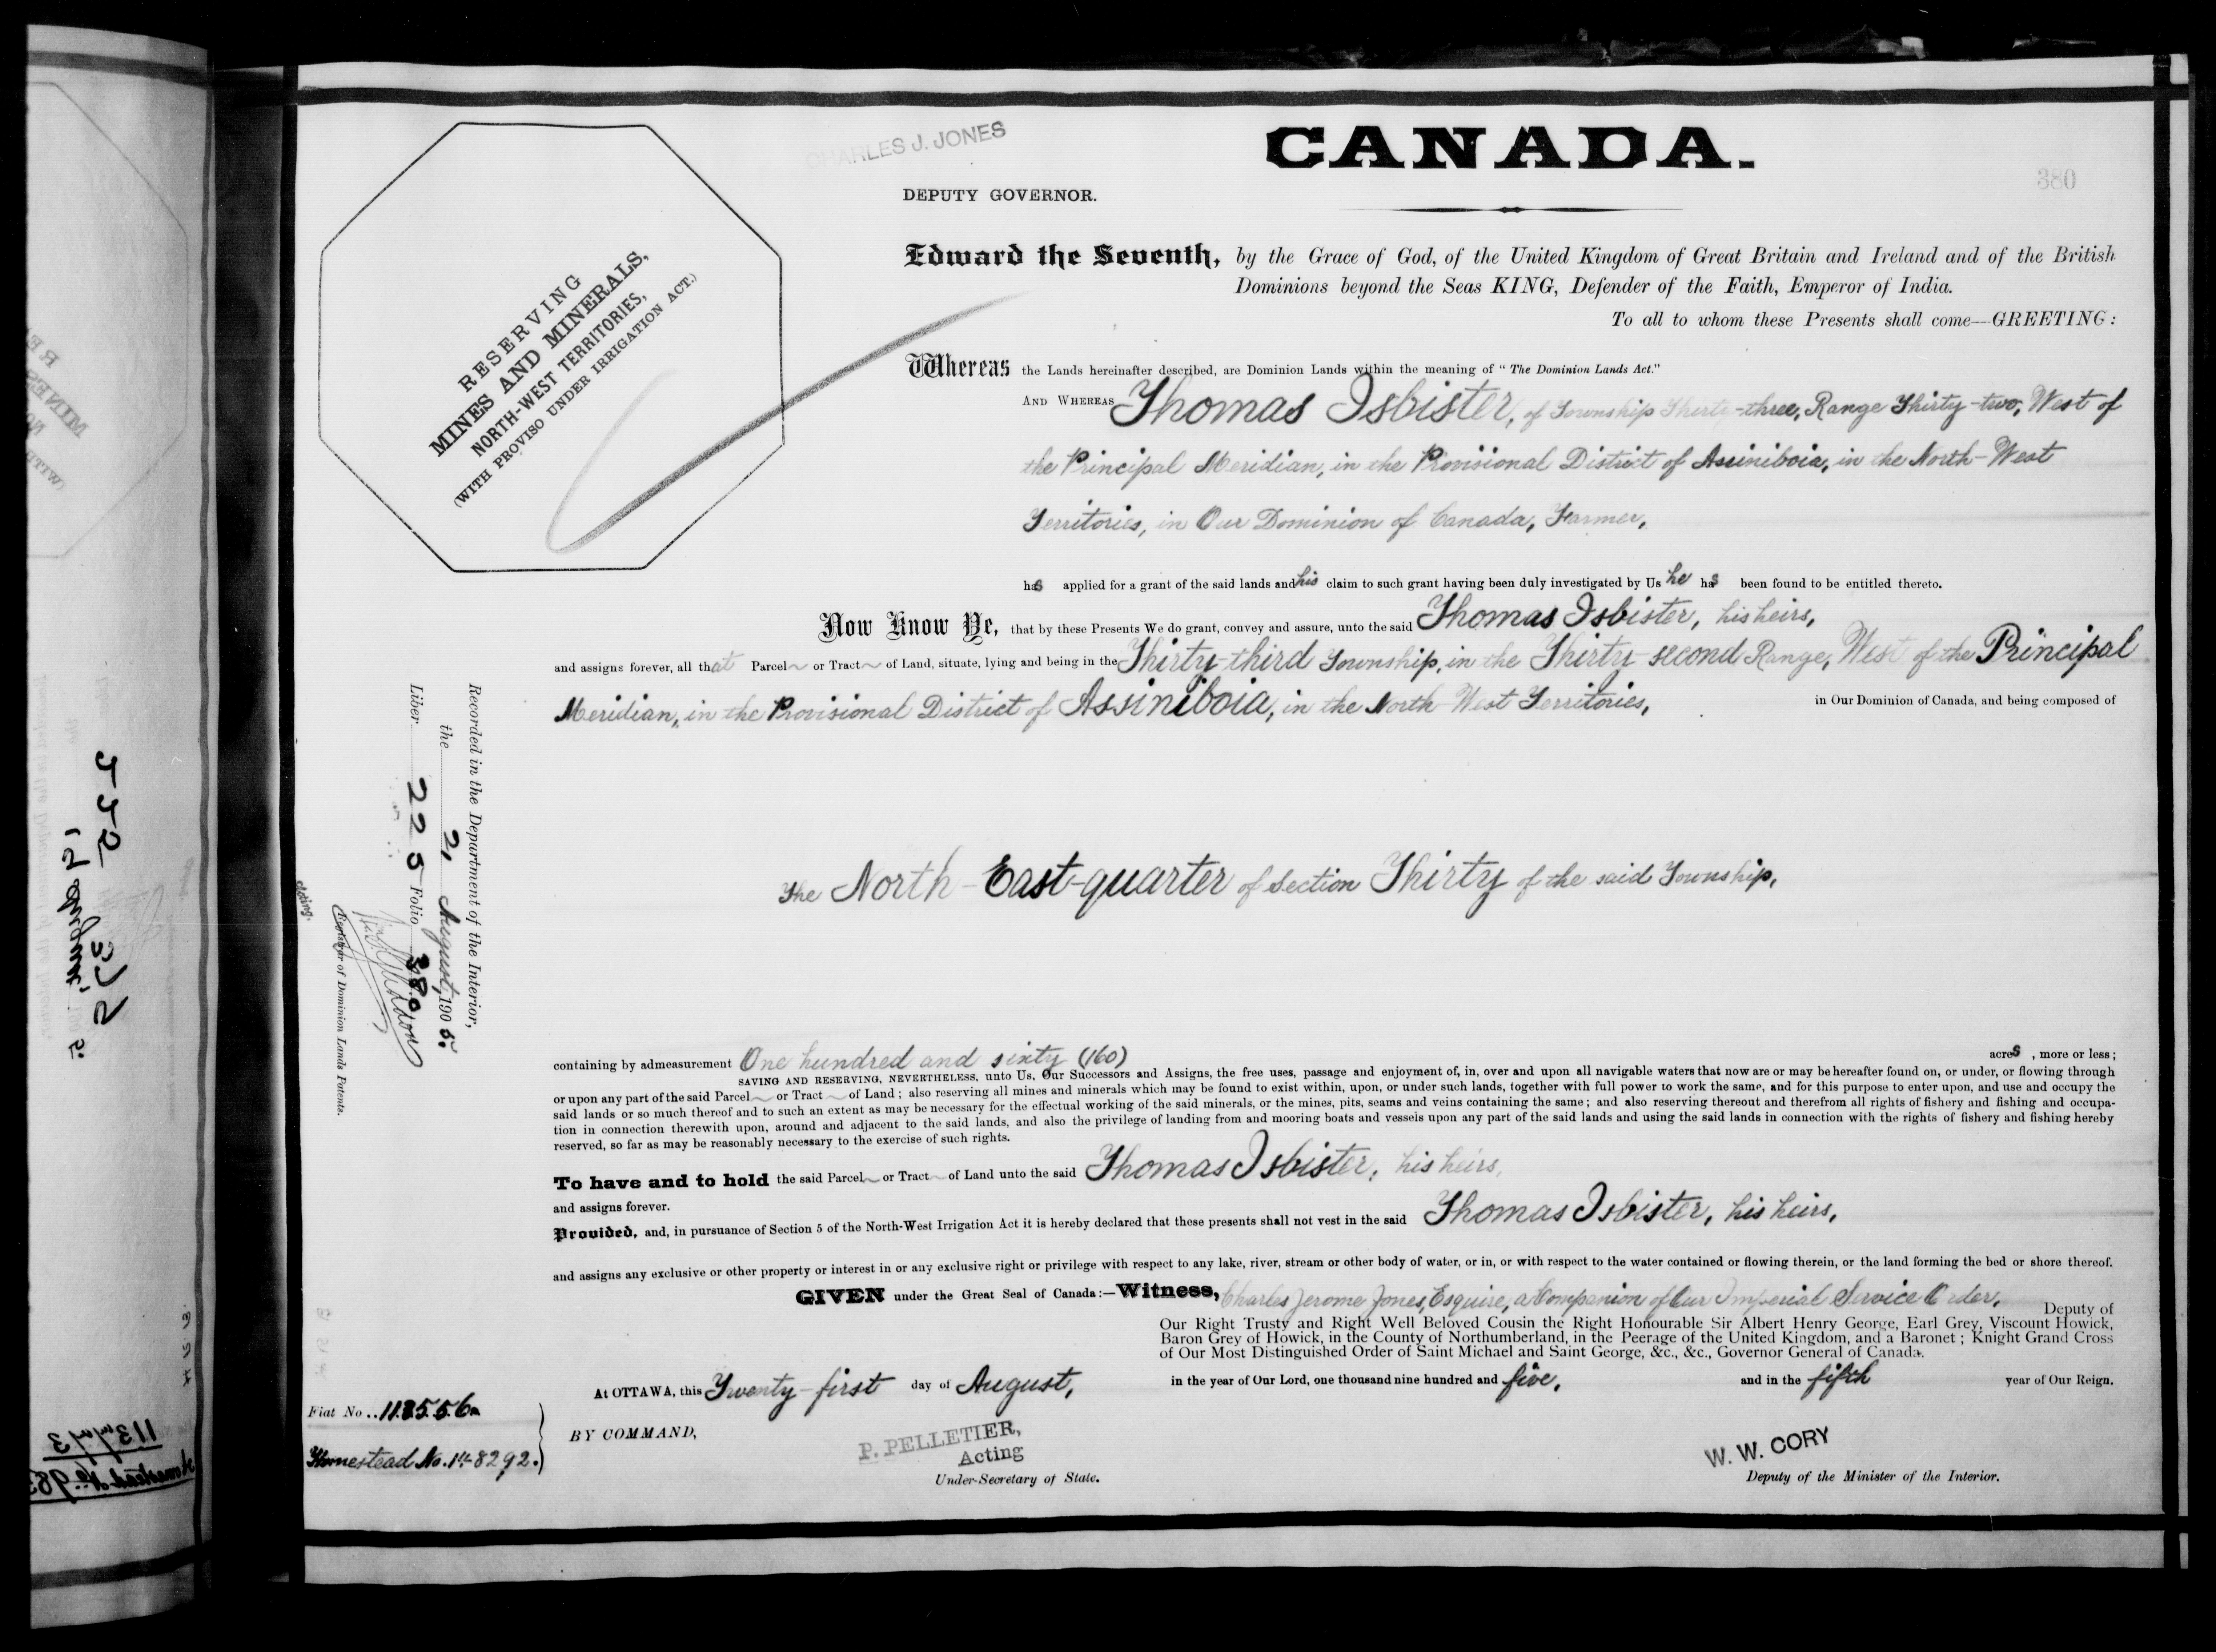 CHARLES J. JONES
CANADA.
380
DEPUTY GOVERNOR.
RESERVING
MINES AND MINERALS,
NORTH-WEST TERRITORIES,
(WITH PROVISO UNDER IRRIGATION ACT.)
Edward the Seventh, by the Grace of God, of the United Kingdom of Great Britain and Ireland and of the British
Dominions beyond the Seas KING, Defender of the Faith, Emperor of India.
To all to whom these Presents shall come—GREETING:
Whereas the Lands hereinafter described, are Dominion Lands within the meaning of "The Dominion Lands Act."
AND WHEREAS Thomas Isbister, of Township Thirty-three, Range Thirty-two, West of
the Principal Meridian, in the Provisional District of Assiniboia, in the North-West
Territories, in Our Dominion of Canada, Farmer,
has applied for a grant of the said lands and his claim to such grant having been duly investigated by Us he has been found to be entitled thereto.
Now Know Ye, that by these Presents We do grant, convey and assure, unto the said Thomas Isbister, his heirs,
and assigns forever, all that Parcel or Tract of Land, situate, lying and being in the Thirty-third Township, in the Thirty-second Range, West of the Principal
Meridian, in the Provisional District of Assiniboia, in the North-West Territories, in Our Dominion of Canada, and being composed of
The North-East-quarter of Section Thirty of the said Township,
Recorded in the Department of the Interior,
the 2, August, 1905.
Liber 225 Folio 380
Registrar of Dominion Lands Patents.
Acting.
containing by admeasurement One hundred and sixty (160) acres, more or less;
SAVING AND RESERVING, NEVERTHELESS, unto Us, Our Successors and Assigns, the free uses, passage and enjoyment of, in, over and upon all navigable waters that now are or may be hereafter found on, or under, or flowing through
or upon any part of the said Parcel or Tract of Land; also reserving all mines and minerals which may be found to exist within, upon, or under such lands, together with full power to work the same, and for this purpose to enter upon, and use and occupy the
said lands or so much thereof and to such an extent as may be necessary for the effectual working of the said minerals, or the mines, pits, seams and veins containing the same; and also reserving thereout and therefrom all rights of fishery and fishing and occupa-
tion in connection therewith upon, around and adjacent to the said lands, and also the privilege of landing from and mooring boats and vessels upon any part of the said lands and using the said lands in connection with the rights of fishery and fishing hereby
reserved, so far as may be reasonably necessary to the exercise of such rights.
To have and to hold the said Parcel or Tract of Land unto the said Thomas Isbister, his heirs,
and assigns forever.
Provided, and, in pursuance of Section 5 of the North-West Irrigation Act it is hereby declared that these presents shall not vest in the said Thomas Isbister, his heirs,
and assigns any exclusive or other property or interest in or any exclusive right or privilege with respect to any lake, river, stream or other body of water, or in, or with respect to the water contained or flowing therein, or the land forming the bed or shore thereof.
GIVEN under the Great Seal of Canada:—Witness, Charles Jerome Jones, Esquire, a Companion of Our Imperial Service Order, Deputy of
Our Right Trusty and Right Well Beloved Cousin the Right Honourable Sir Albert Henry George, Earl Grey, Viscount Howick,
Baron Grey of Howick, in the County of Northumberland, in the Peerage of the United Kingdom, and a Baronet; Knight Grand Cross
of Our Most Distinguished Order of Saint Michael and Saint George, &c., &c., Governor General of Canada.
At OTTAWA, this Twenty-first day of August, in the year of Our Lord, one thousand nine hundred and five, and in the fifth year of Our Reign.
Fiat No..
Homestead No.
BY COMMAND,
P. PELLETIER,
Acting
Under-Secretary of State.
W. W. CORY
Deputy of the Minister of the Interior.